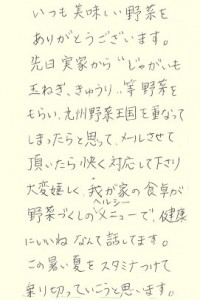 いつも美味しい野菜を
ありがとうございます。
先日実家から"じゃがいも
玉ねぎ、きゅうり"等野菜を
もらい、九州野菜王国を重なって
しまったらと思って、メールさせて
頂いたら快く対応して下さり
大変嬉しく、我が家の食卓が
ヘルシー
野菜づくしのメニューで、健康
にいいね なんて話してます。
この暑い夏をスタミナつけて
乗り切っていこうと思います。